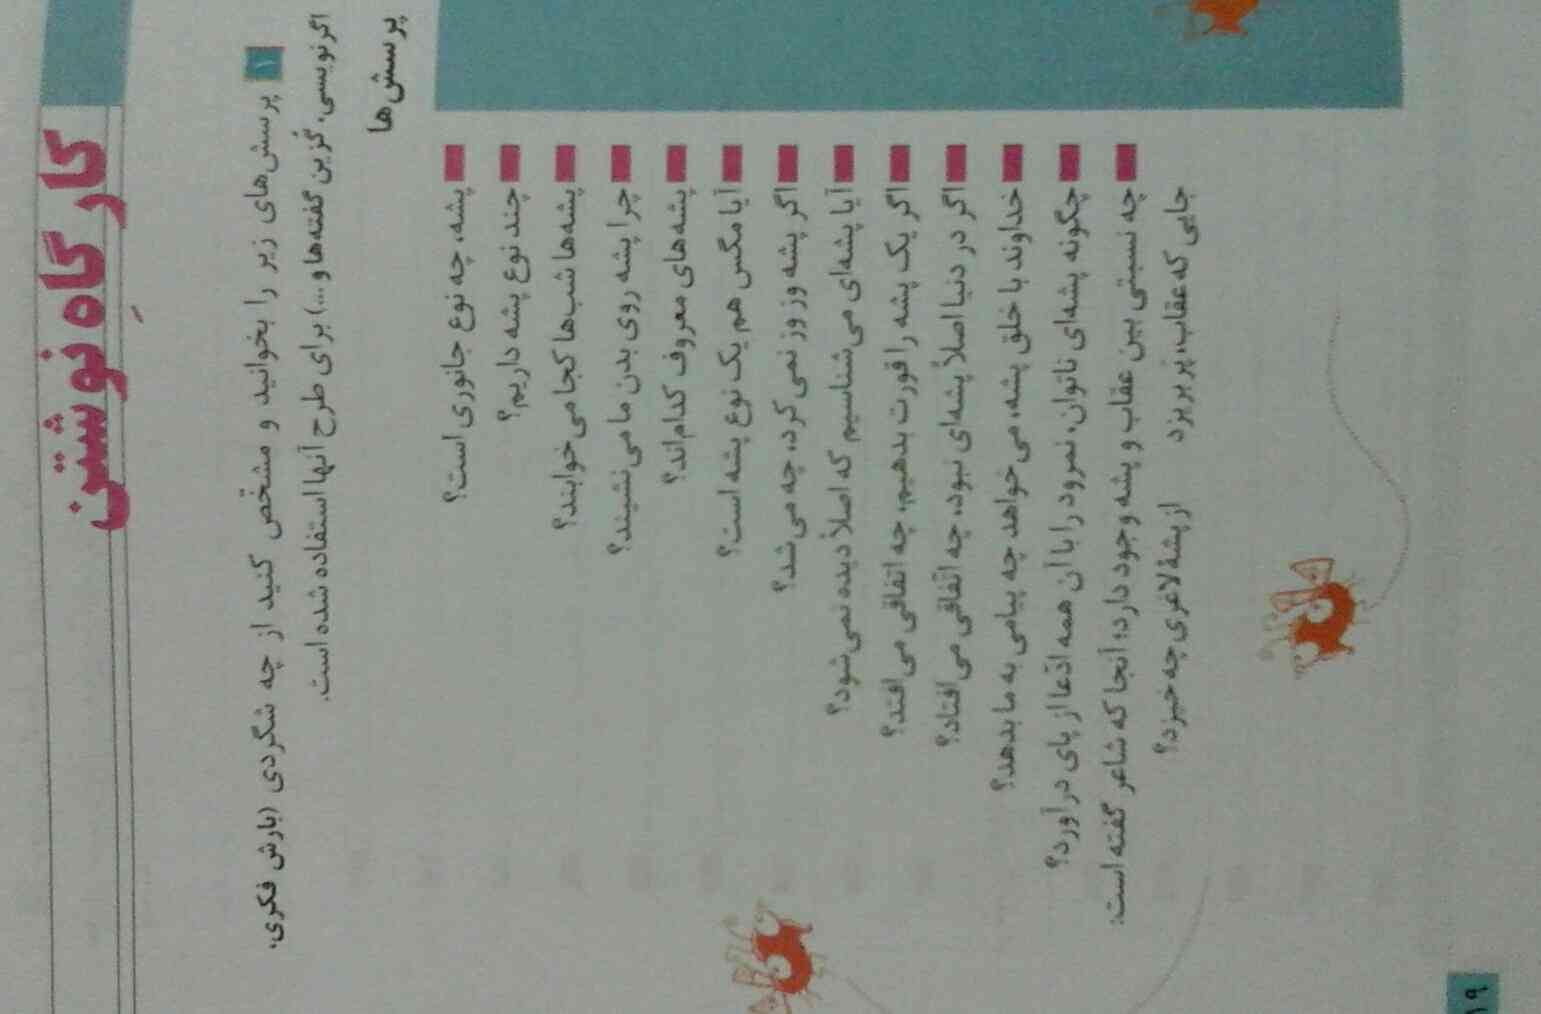 کارگاهِ نوشتن
۱ پرسش‌های زیر را بخوانید و مشخّص کنید از چه شگردی (بارش فکری،
اگرنویسی، گزین گفته‌ها و ...) برای طرح آنها استفاده شده است.
پرسش‌ها
پشه، چه نوع جانوری است؟
چند نوع پشه داریم؟
پشه‌ها شب‌ها کجا می‌خوابند؟
چرا پشه روی بدن ما می‌نشیند؟
پشه‌های معروف کدام‌اند؟
آیا مگس هم یک نوع پشه است؟
اگر پشه وز وز نمی‌کرد، چه می‌شد؟
آیا پشه‌ای می‌شناسیم که اصلاً دیده نمی‌شود؟
اگر یک پشه را قورت بدهیم، چه اتفاقی می‌افتد؟
اگر در دنیا اصلاً پشه‌ای نبود، چه اتّفاقی می‌افتاد؟
خداوند با خلق پشه، می‌خواهد چه پیامی به ما بدهد؟
چگونه پشه‌ای ناتوان، نمرود را با آن همه ادّعا از پای درآورد؟
چه نسبتی بین عقاب و پشه وجود دارد؛ آنجا که شاعر گفته است:
جایی که عقاب، پر بریزد از پشهٔ لاغری چه خیزد؟